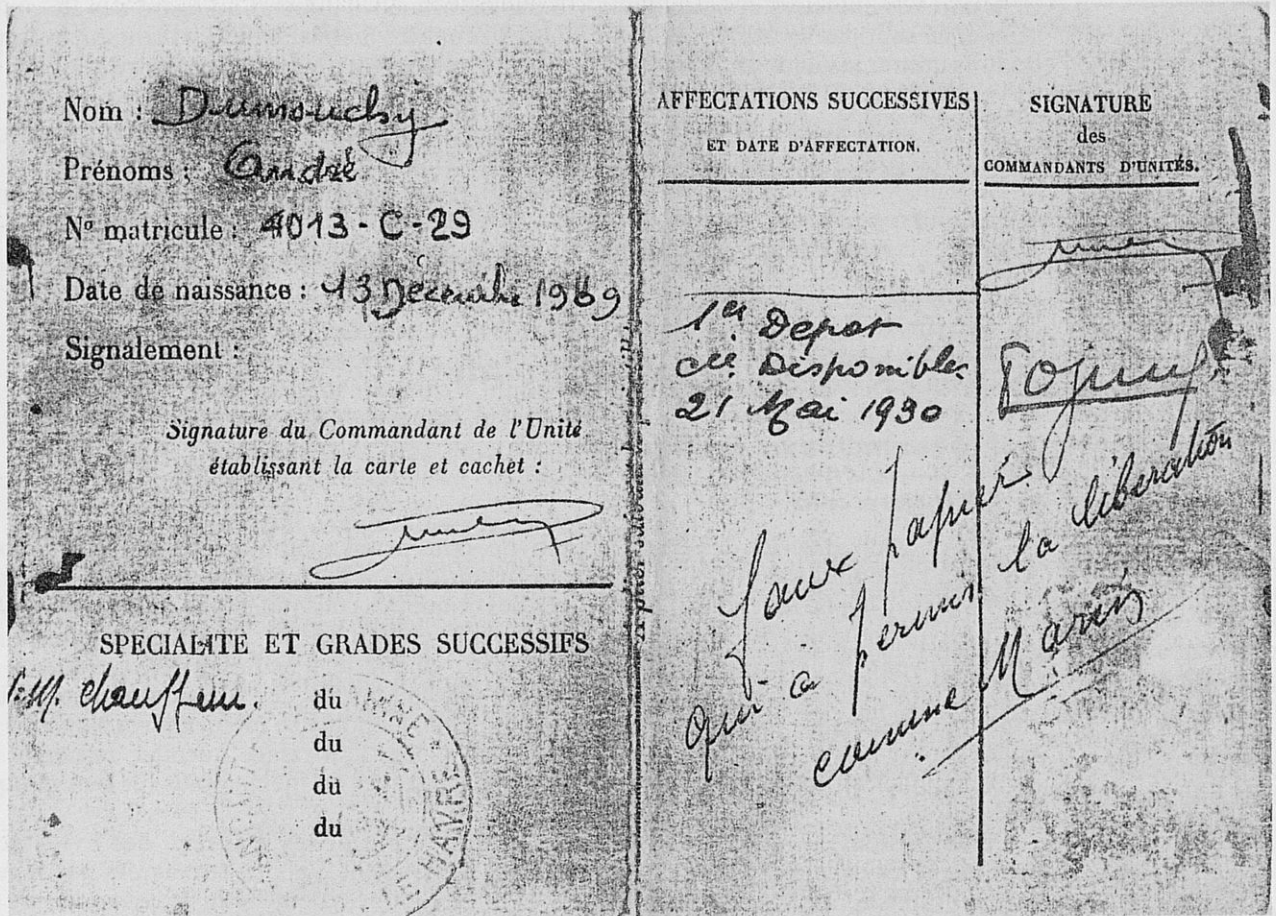 Nom : Dumouchy
Prénoms : André
Nº matricule : 4013-C-29
Date de naissance : 13 Décembre 1909
Signalement :
Signature du Commandant de l'Unité
établissant la carte et cachet :
SPECIALITE ET GRADES SUCCESSIFS
chauffeur. du
du
du
du
LE HAVRE
AFFECTATIONS SUCCESSIVES
ET DATE D'AFFECTATION.
SIGNATURE
des
COMMANDANTS D'UNITÉS.
1er Depot
cie Disponibles
21 Mai 1930
Faux papier
qui a permis la libération
comme Marin